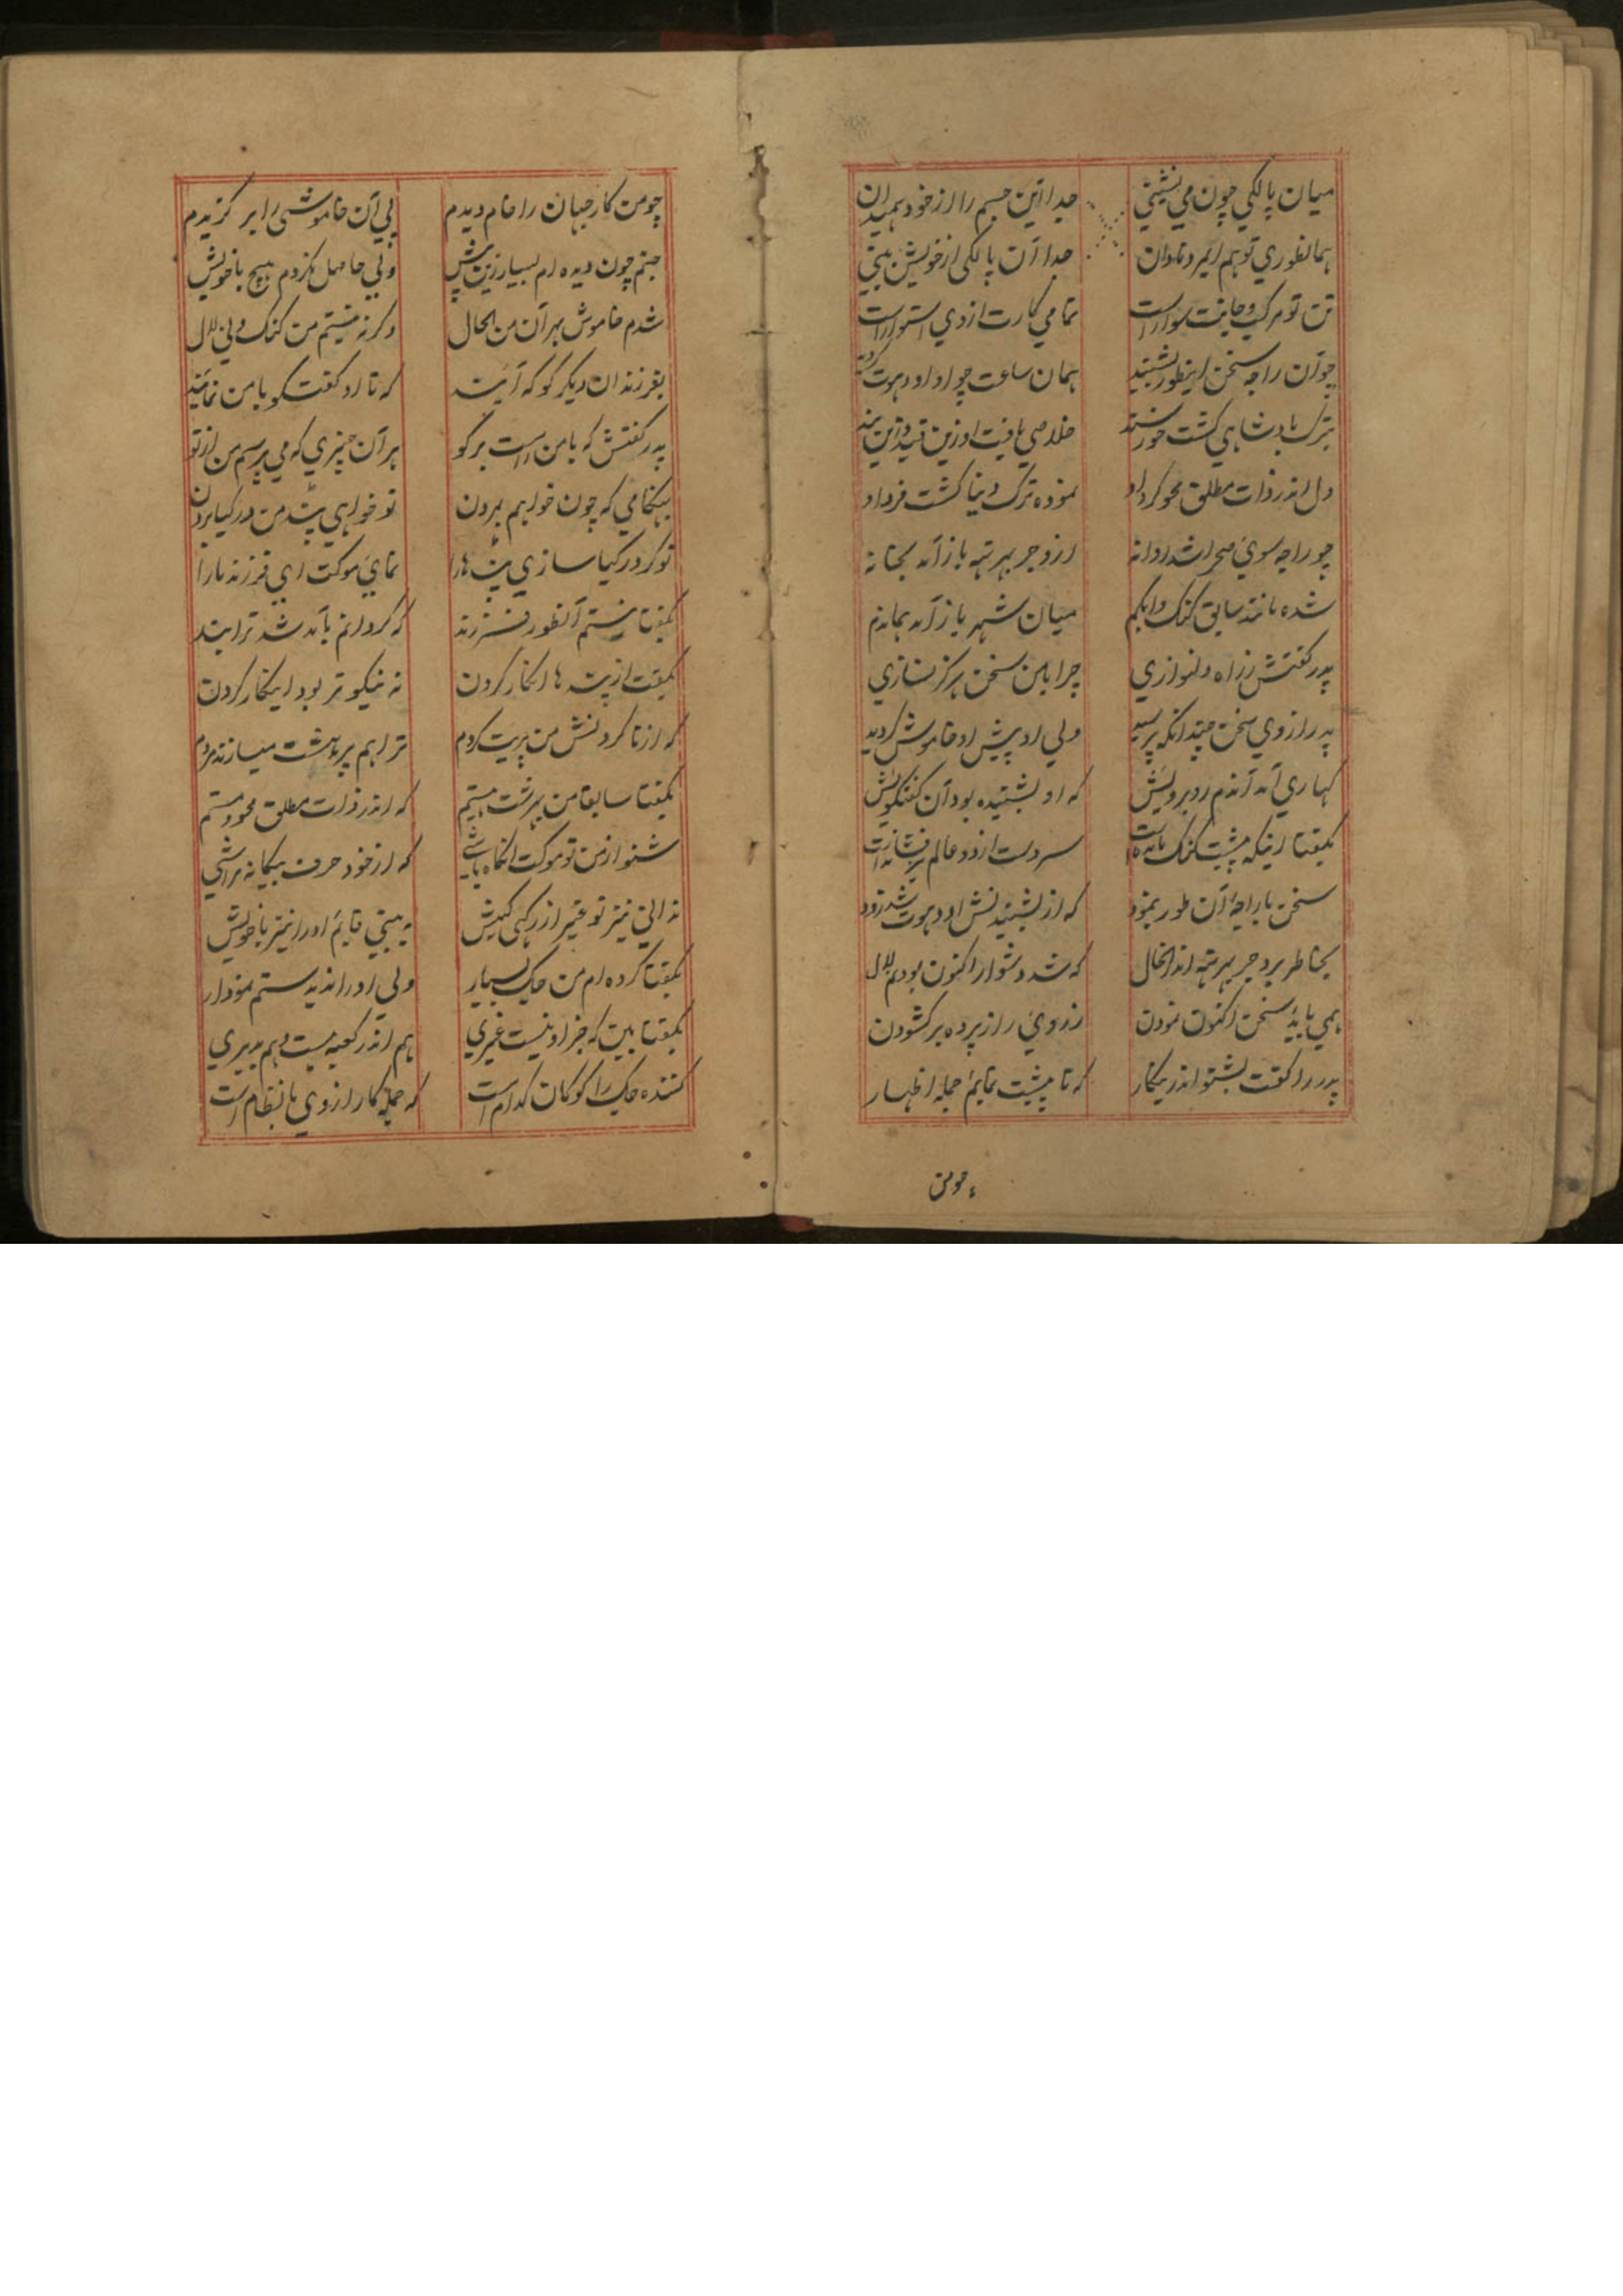 میان پالکی چون می نشینی جدا این جسم را از خود همیدان
همانطوری تو هم ای مرد نادان جدا آن پالکی از خویش بینی
تن تو مرکب و جانت سوار است تمامی کارت از وی استوار است
چو آن راجه سخن اینطور بشنید همان ساعت چو او اودهوت گردید
بترک بادشاهی گشت خورسند خلاصی یافت او زین قید و این بند
دل اندر ذات مطلق محو کرد او نموده ترک دنیا گشت فرد او
چو راجه سوی صحرا شد روانه ازو جر بهرتهه باز آمد بخانه
شده مانند سابق گنگ و ابکم میان شهر باز آمد بماندم
پدر گفتش ز راه دلنوازی چرا با من سخن هرگز نسازی
پدر از وی سخن چندانکه پرسید ولی او پیش او خاموش گردید
کهاری آمد آندم روبرویش که او بشنیده بود آن گفتگویش
بگفتا اینکه پیشت گنگ مانده است سر دست از دو عالم برفشانده است
سخن با راجه آن طور بنمود که از بشنیدنش اودهوت شد زود
بخاطر برد جر بهرتهه اندر انحال که شد دشوار اکنون بودنم لال
همی باید سخن اکنون نمودن ز روی راز پرده برگشودن
پدر را گفت بشنو اندر ینکار که تا پیشت نمایم جمله اظهار
چو من
چو من کار جهان را خام دیدم پی آن خاموشی را بر گزیدم
جنم چون دیده ام بسیار زین پیش ولی حاصل نکردم هیچ با خویش
شدم خاموش بهر آن من الحال وگرنه نیستم من گنگ و نی لال
بفرزندان دیگر گو که آیند که تا او گفتگو با من نمایند
پدر گفتش که با من راست برگو هر آن چیزی که می پرسم من از تو
بهنگامی که چون خواهم بمردن تو خواهی پند من در گیا بردن
تو گر در گیا سازی پند ها را نمایی موکت ای فرزند ما را
بگفتا نیستم آنطور فرزند که گردانم باند شد ترا پند
بگفت از پند ها انکار کردن نه نیکوتر بود اینکار کردن
که از نا کردنش من پریت گردم ترا هم پر بهشت میسازند مردم
بگفتا سابقا من بهرشت هستم که اندر ذات مطلق محو و مستم
شنو از من تو موکت انگاه باشی که از خود حرف بیگانه تراشی
ندانی نیز تو غیر از رکهی کیش ببینی قایم او را نیز با خویش
بگفتا کرده ام من جگ بسیار ولی او را ندیدستم نمودار
بگفتا بین که جز او نیست غیری هم اندر کعبه هست و هم بدیری
کننده جگ را گو کان کدام است که جمله کار از وی با نظام است